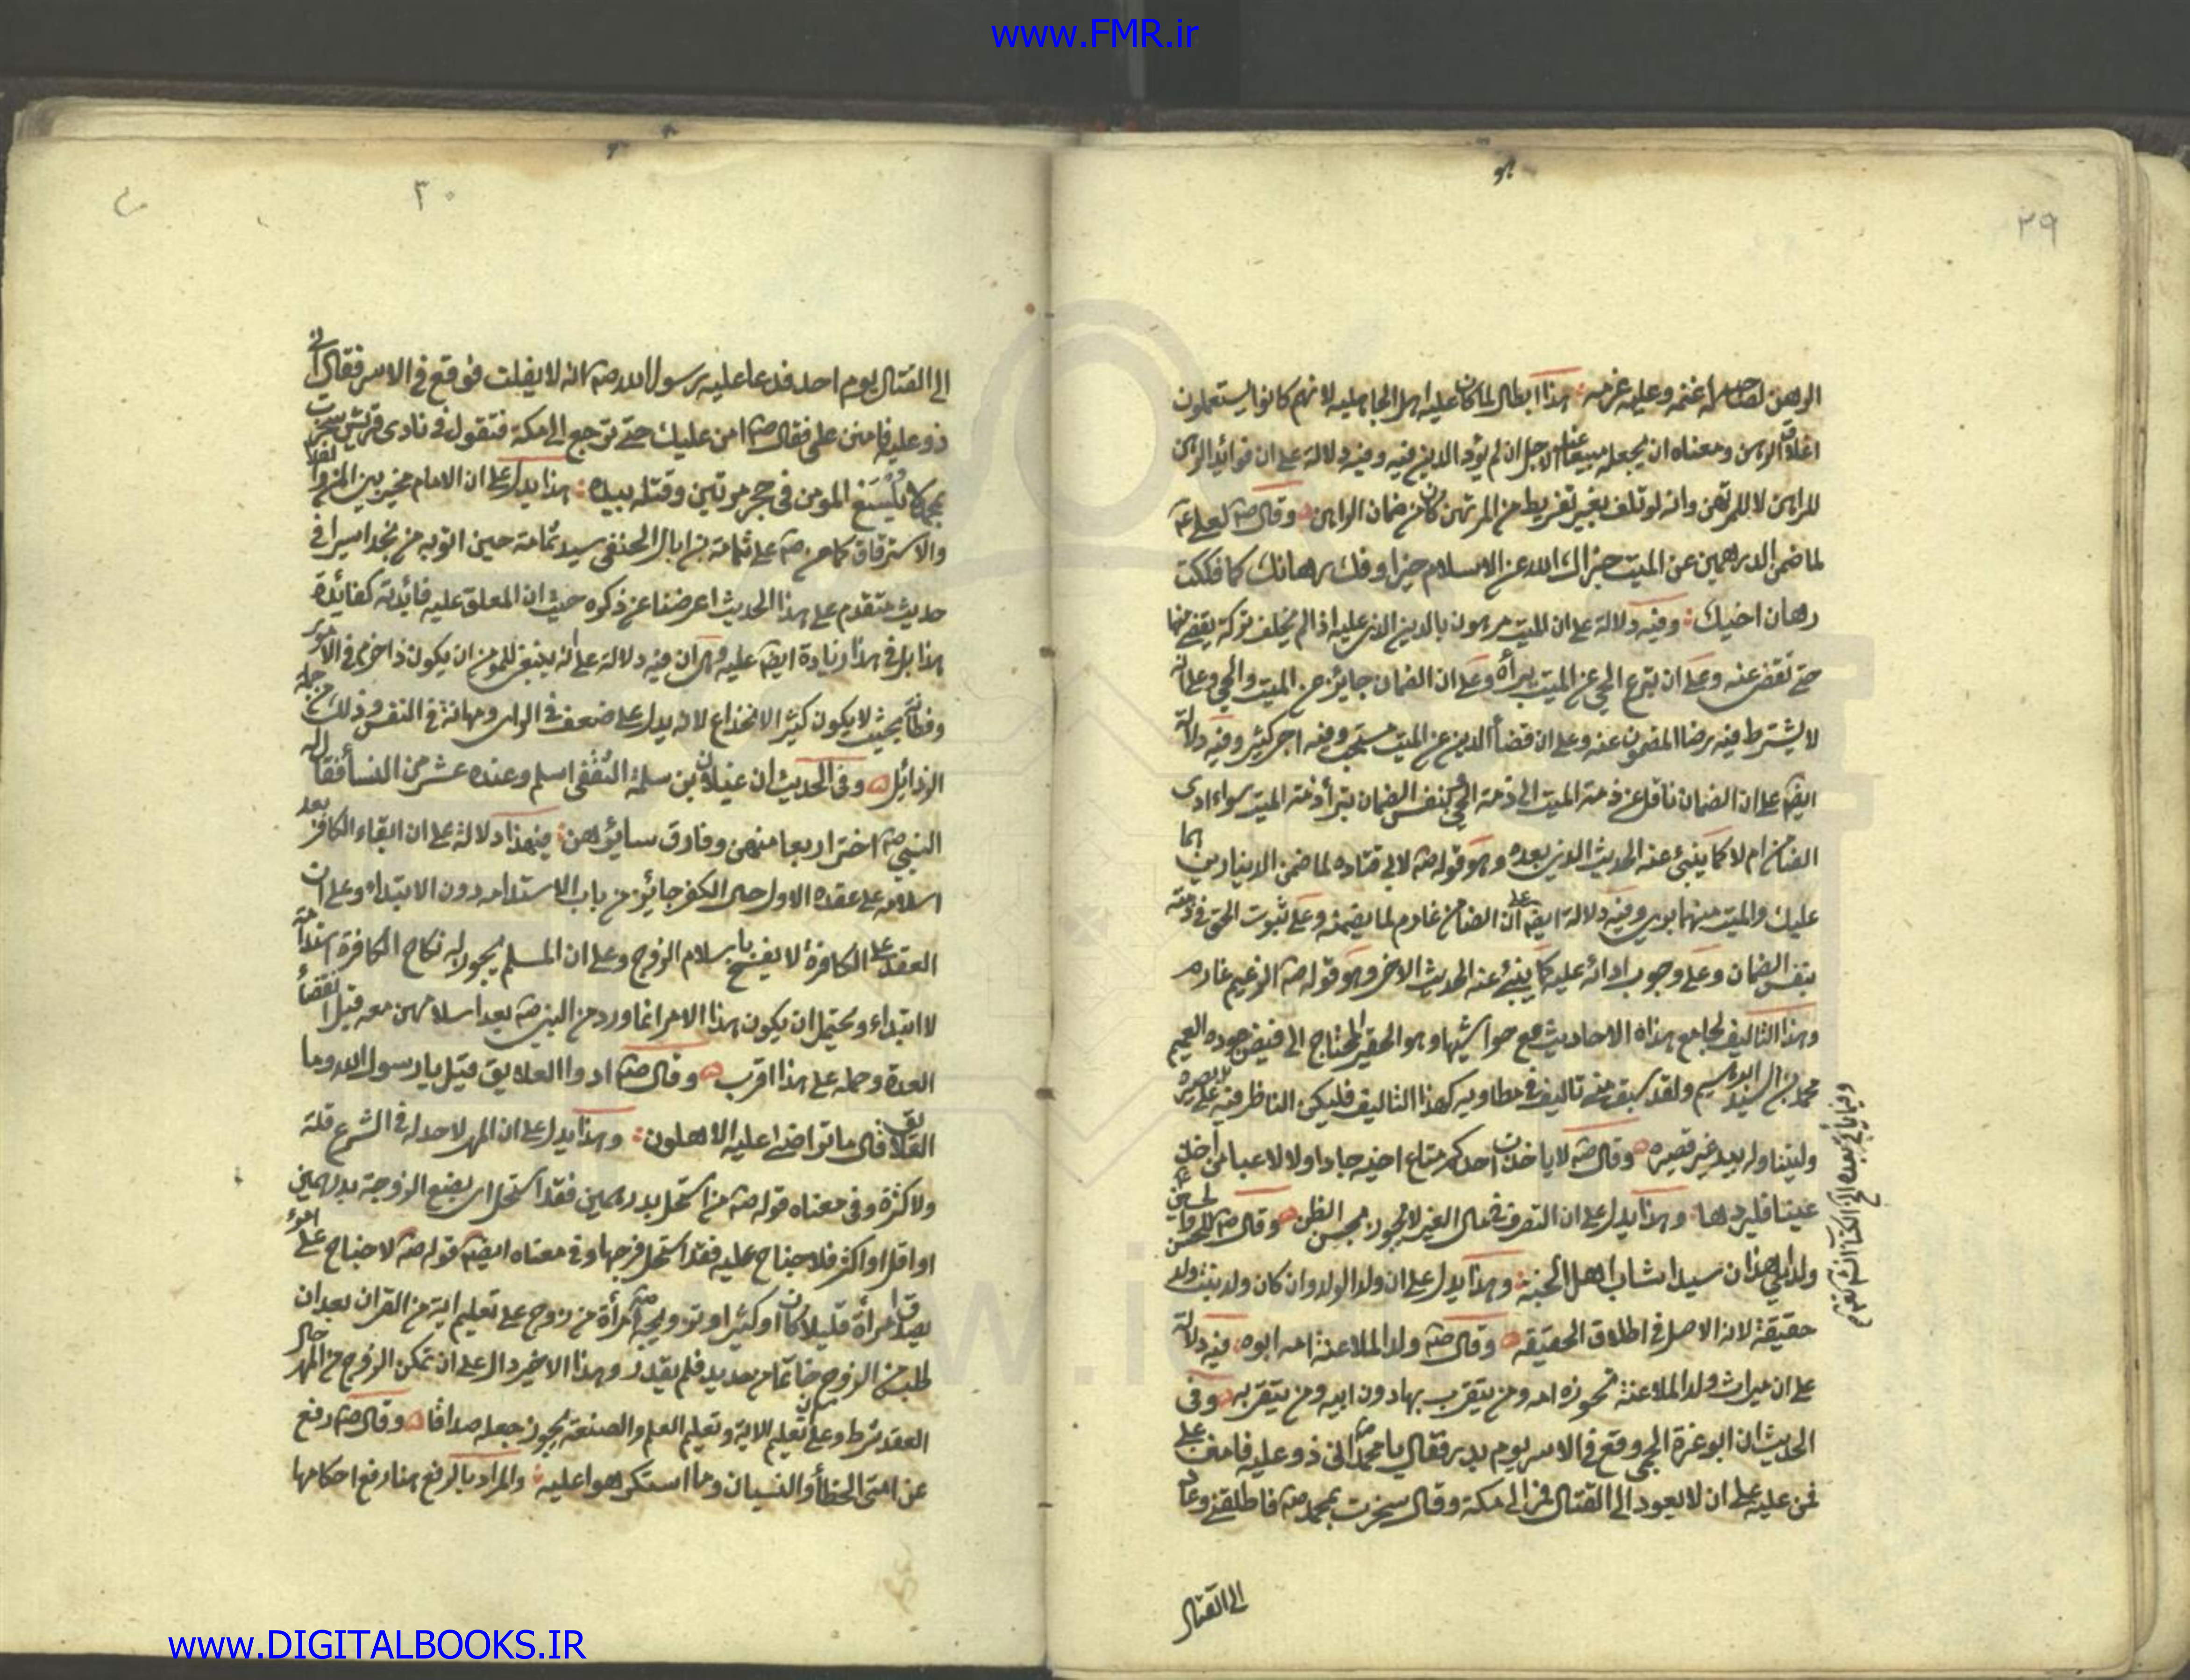 www.FMR.ir
٢٩
الرهن لصاحبه له غنمه وعليه غرمه هذا ابطال لما كان عليه اهل الجاهليه لانهم كانوا يستعملون
اغلاق الرهن ومعناه ان يجعله مبيعا عند الاجل ان لم يؤد الدين فيه وفيه دلالة على ان فوائد الرهن
للراهن لا للمرتهن وانه لو تلف بغير تفريط من المرتهن كان من ضمان الراهن وقال صم لعلى عم
لما ضمن الدرهمين عن الميت جزاك الله عن الاسلام خيرا وفك رهانك كما فككت
رهان اخيك وفيه دلالة على ان الميت مرهون بالدين الذى عليه اذا لم يخلف تركة يقضى منها
حتى تقضى عنه وعلى ان تبرع الحى عن الميت يبرأه وعلى ان الضمان جايز عن الميت والحى وعلى انه
لا يشترط فيه رضا المضمون عنه وعلى ان قضأ الدين عن الميت مستحب وفيه اجر كثير وفيه دلالة
ايضا على ان الضمان ناقل عن ذمة الميت الى ذمة الحى فبنفس الضمان تبرأ ذمة الميت سواء ادى
الضامن ام لا كما ينبئ عنه الحديث الذى بعده وهو قوله صم لابى قتاده لما ضمن الدينارين هما
عليك والميت منهما برى وفيه دلالة ايضا على ان الضامن غارم لما يضمنه وعلى ثبوت الحق فى ذمته
بنفس الضمان وعلى وجوب ادائه عليه كما ينبئ عنه الحديث الاخر وهو قوله صم الزعيم غارم
وهذا التاليف لجامع هذه الاحاديث مع حواشيها وهو الحقير المحتاج الى فيض جوده العميم
محمد بن السيد ابراهيم ولقد سبق منى تاليف فى مطاويه كهذا التاليف فليكن الناظر فيه على بصيره
وليتناوله بيد غير قصيره وقال صم لا ياخذن احدكم متاع اخيه جادا ولا لاعبا من أخذ
عينا فليردها وهذا يدل على ان التصرف فى مال الغير لا يجوز بمحض الظن وقال صم للحسن والحسين عم
ولداى هذان سيدا شباب اهل الجنة وهذا يدل على ان ولد الولد وان كان ولد بنت ولد
حقيقة لان الاصل فى اطلاق الحقيقه وقال صم ولد الملاعنة امه ابوه فيه دلالة
على ان ميراث ولد الملاعنة تحوزه امه ومن يتقرب بها دون ابيه ومن يتقرب به وفى
الحديث ان ابو عزة الجمحى وقع فى الاسر يوم بدر فقال يا محمد صم انى ذو عليه فامنن على
فمن عليه على ان لا يعود الى القتال فمر الى مكة وقال سخرت بمحمد صم فاطلقنى وعاد
الى القتال
٣٠
الى القتال يوم احد فدعا عليه رسول الله صم ان لا يفلت فوقع فى الاسر فقال انى
ذو عليه فامنن على فقال صم امن عليك حتى ترجع الى مكة فتقول فى نادى قريش سخرت
بمحمد لا يلسع المومن فى جحر مرتين وقتله بيده هذا يدل على ان الامام مخير بين المن والفدا
والاسترقاق كما من صم على ثمامة بن اثال الحنفى سيد ثمامة حين اتو به من نجد اسيرا فى
حديث متقدم على هذا الحديث اعرضنا عن ذكره حيث ان المعلق عليه فائدته كفائدة
هذا بل فى هذا زيادة ايضا عليه وهى ان فيه دلالة على انه ينبغى للمومن ان يكون ذا حزم فى الامور
وفطانة بحيث لا يكون كثير الانخداع لانه يدل على ضعف فى الراى ومهانة فى النفس وذلك من جملة
الرذائل وفى الحديث ان غيلان بن سلمة الثقفى اسلم وعنده عشر من النسأ فقال له
النبى صم اختر اربعا منهن وفارق سائرهن فيهذا دلالة على ان ابقاء الكافر بعد
اسلامه على عقده الاول حال الكفر جائز من باب الاستدامه دون الابتداء وعلى ان
العقد على الكافرة لا يفسخ باسلام الزوج وعلى ان المسلم يجوز له نكاح الكافرة استدامة
لا ابتداء ويحتمل ان يكون هذا الامر انما ورد من النبى صم بعد اسلامهن معه قبل انقضأ
العدة وحمله على هذا اقرب وقال صم ادوا العلايق قيل يا رسول الله وما
العلايق قال ما تراضى عليه الاهلون وهذا يدل على ان المهر لاحد له فى الشرع قلة
ولا كثرة وفى معناه قوله صم من استحل بدرهمين فقد استحل اى بضع الزوجة بدرهمين
او اقل او اكثر فلا جناح عليه فقد استحل فرجها وفى معناه ايضا قوله صم لا جناح على امرء
يصدق امرأة قليلا كان او كثيرا وتزويجه صم امرأة من زوج على تعليم اية من القران بعد ان
طلب من الزوج خاتما من حديد فلم يقدر وهذا الاخير دال على ان تمكن الزوج من المهر حال
العقد شرط وعلى ان تعليم الاية وتعليم العلم والصنعة يجوز جعله صداقا وقال صم رفع
عن امتى الخطأ والنسيان وما استكرهوا عليه والمراد بالرفع هنا رفع احكامها
www.DIGITALBOOKS.IR